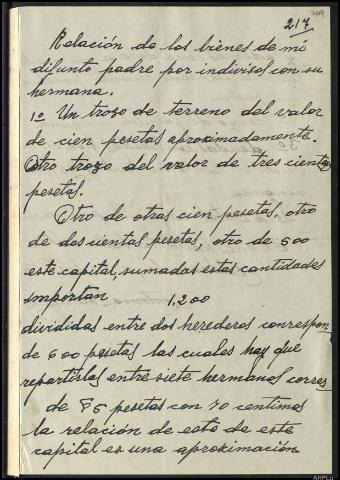 34A
217
Relación de los bienes de mi
difunto padre por indivisos con su
hermana.
1º Un trozo de terreno del valor
de cien pesetas aproximadamente.
Otro trozo del valor de tres cientas
pesetas.
Otro de otras cien pesetas, otro
de doscientas pesetas, otro de 500
este capital, sumadas estas cantidades
importan 1,200
divididas entre dos herederos conrespon
de 600 pesetas las cuales hay que
repartirlas entre siete hermanos corres
de 85 pesetas con 70 centimos
la relación de esto de este
capital es una aproximación
AHPLu